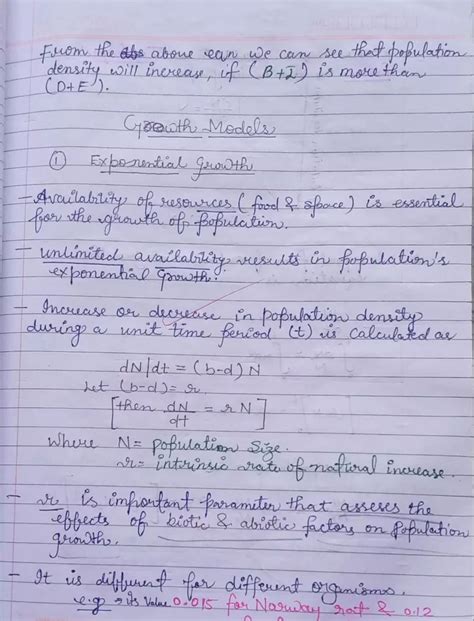 From the abs above eqn we can see that population
density will increase, if (B+I) is more than
(D+E).
Growth Models
① Exponential growth
- Availability of resources (food & space) is essential
for the growth of population.
- unlimited availability results in population's
exponential growth.
- Increase or decrease in population density
during a unit time period (t) is calculated as
dN/dt = (b-d) N
Let (b-d) = r
[then dN/dt = rN]
where N = population size.
r = intrinsic rate of natural increase.
- r is important parameter that asseses the
effects of biotic & abiotic factors on population
growth.
- It is different for different organisms.
e.g → its Value 0.015 for Norway rat & 0.12